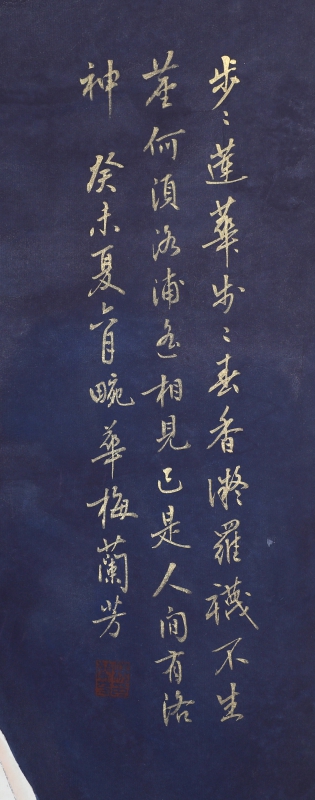 步〻蓮華步〻春香凝羅襪不生
塵何須洛浦遙相見已是人間有洛
神 癸未夏六月畹華梅蘭芳